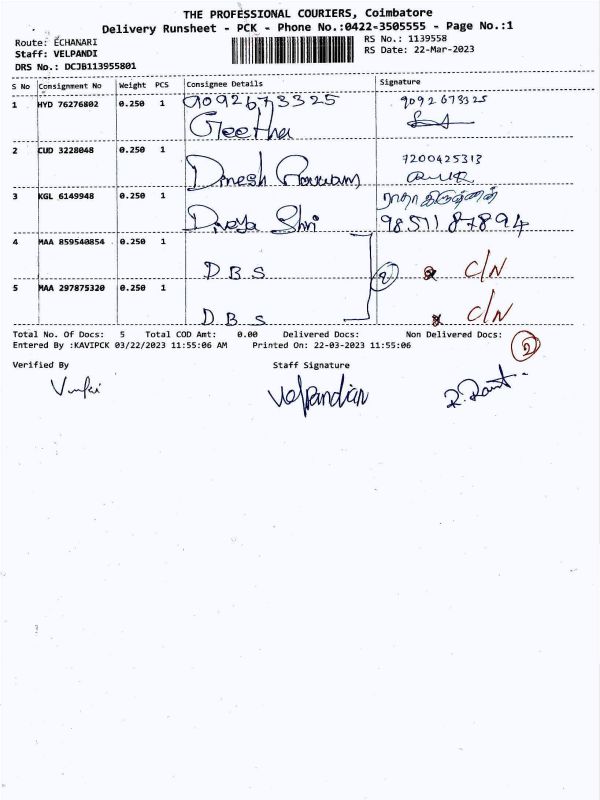 THE PROFESSIONAL COURIERS, Coimbatore
Delivery Runsheet - PCK - Phone No.:0422-3505555 - Page No.:1
Route: ECHANARI
RS No.: 1139558
Staff: VELPANDI
RS Date: 22-Mar-2023
DRS No.: DCJB113955801
S No Consignment No Weight PCS Consignee Details Signature
1 HYD 76276802 0.250 1 9092673325 9092673325
Geetha
2 CUD 3228048 0.250 1 7200425313
Dinesh
3 KGL 6149948 0.250 1
Divya Shri 9851187894
4 MAA 859540854 0.250 1
D B S 2 C/N
5 MAA 297875320 0.250 1
D B S C/N
Total No. Of Docs: 5 Total COD Amt: 0.00 Delivered Docs: Non Delivered Docs:
2
Entered By :KAVIPCK 03/22/2023 11:55:06 AM Printed On: 22-03-2023 11:55:06
Verified By Staff Signature
Velpandian